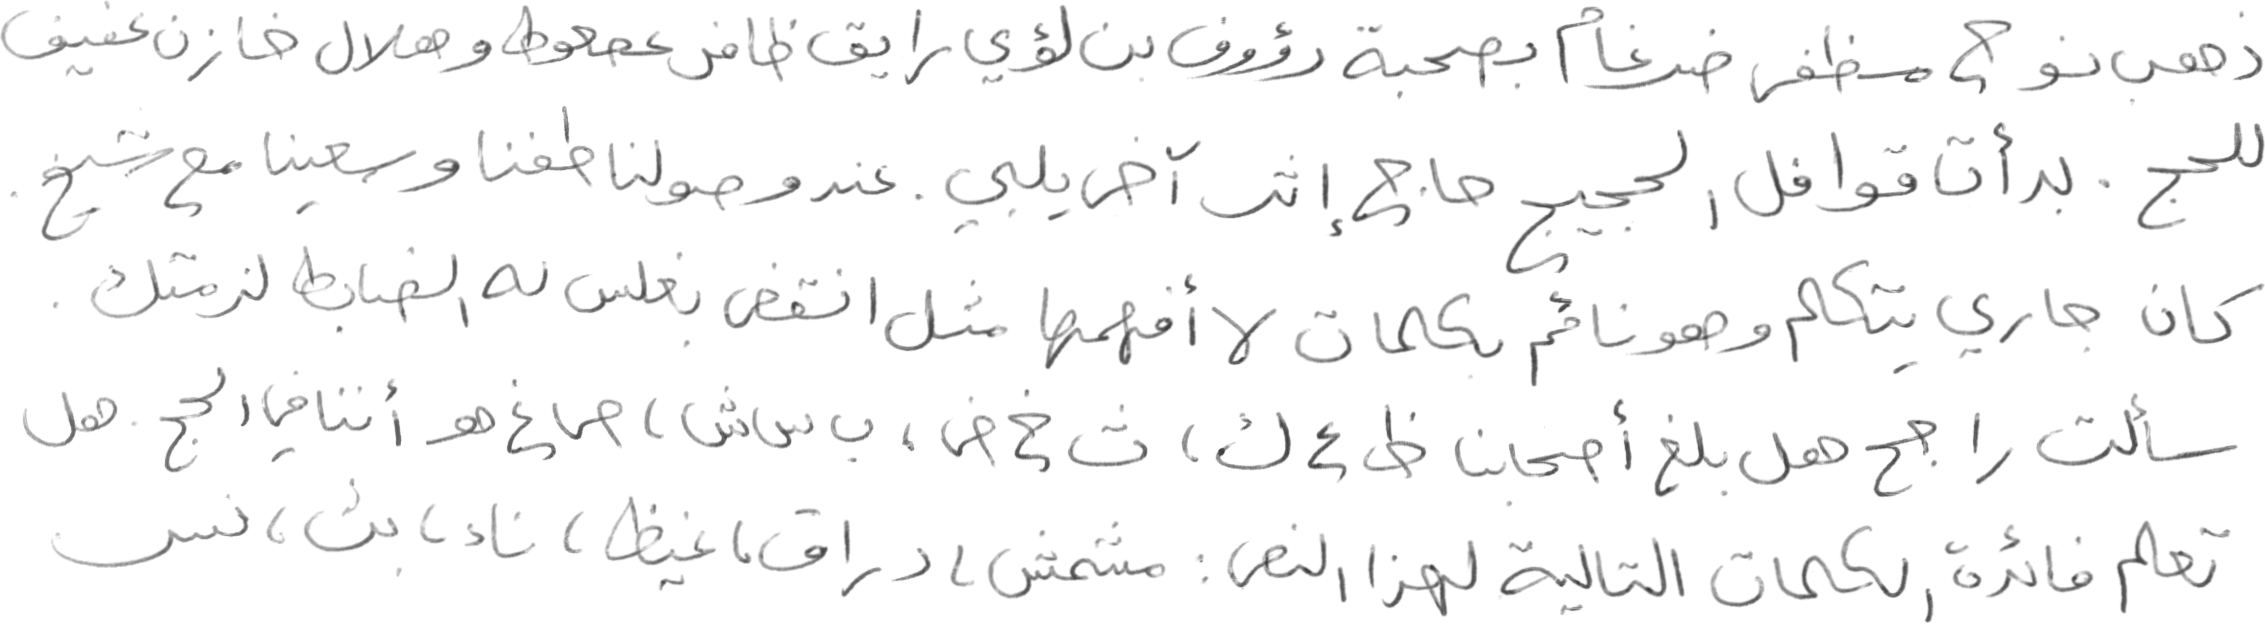 ذهب نوح مظفر ضرغام بصحبة رؤوف بن لؤي رايق ظافر عصعوط وهلال خازن عفيف
للحج . بدأت قوافل الحجيج حاج إثر آخر يلبي . عند وصولنا طفنا وسعينا مع شيخ .
كان جاري يتكلم وهو نائم بكلمات لا أفهمها مثل انقض بغلس له الضابط لزمتك .
سألت راجح هل بلغ أصحابنا ظ ع ك ، ث خ ض ، ب س ش ، ص غ هو أثنا في الحج . هل
تعلم فائدة الكلمات التالية لهذا النص : مشمش ، دراق ، غيظ ، ناء ، بث ، نس